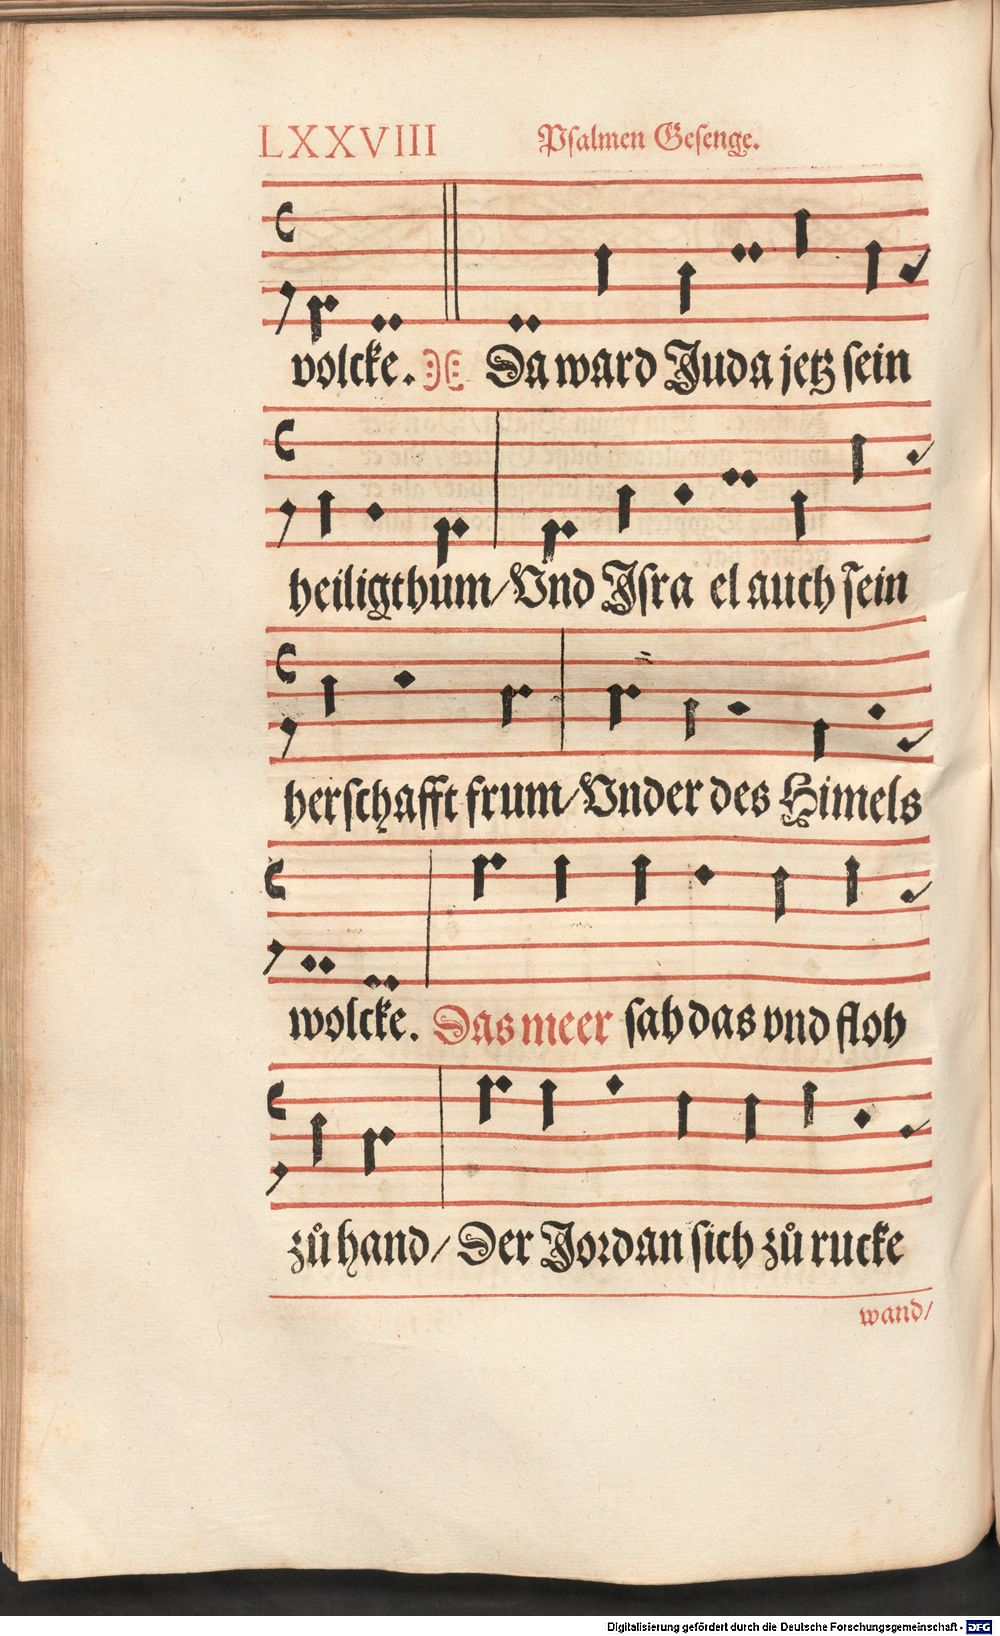 LXXVIII Psalmen Gesenge.
volcke. Da ward Juda jetz sein
heiligthum/ Vnd Jsra el auch sein
herschafft frum/ Vnder des Himels
wolcke. Das meer sah das vnd floh
zů hand/ Der Jordan sich zů rucke
wand/
Digitalisierung gefördert durch die Deutsche Forschungsgemeinschaft - DFG